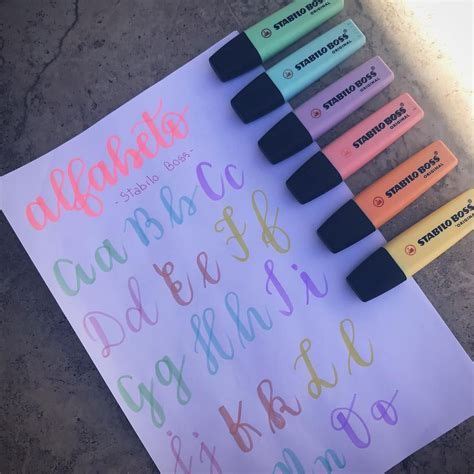 alfabeto
- Stabilo Boss -
Aa Bb Cc
Dd Ee Ff
Gg Hh Ii
Jj Kk Ll
Oo
STABILO BOSS
ORIGINAL
STABILO BOSS
ORIGINAL
STABILO BOSS
ORIGINAL
STABILO BOSS
ORIGINAL
STABILO BOSS
ORIGINAL
STABILO BOSS
ORIGINAL